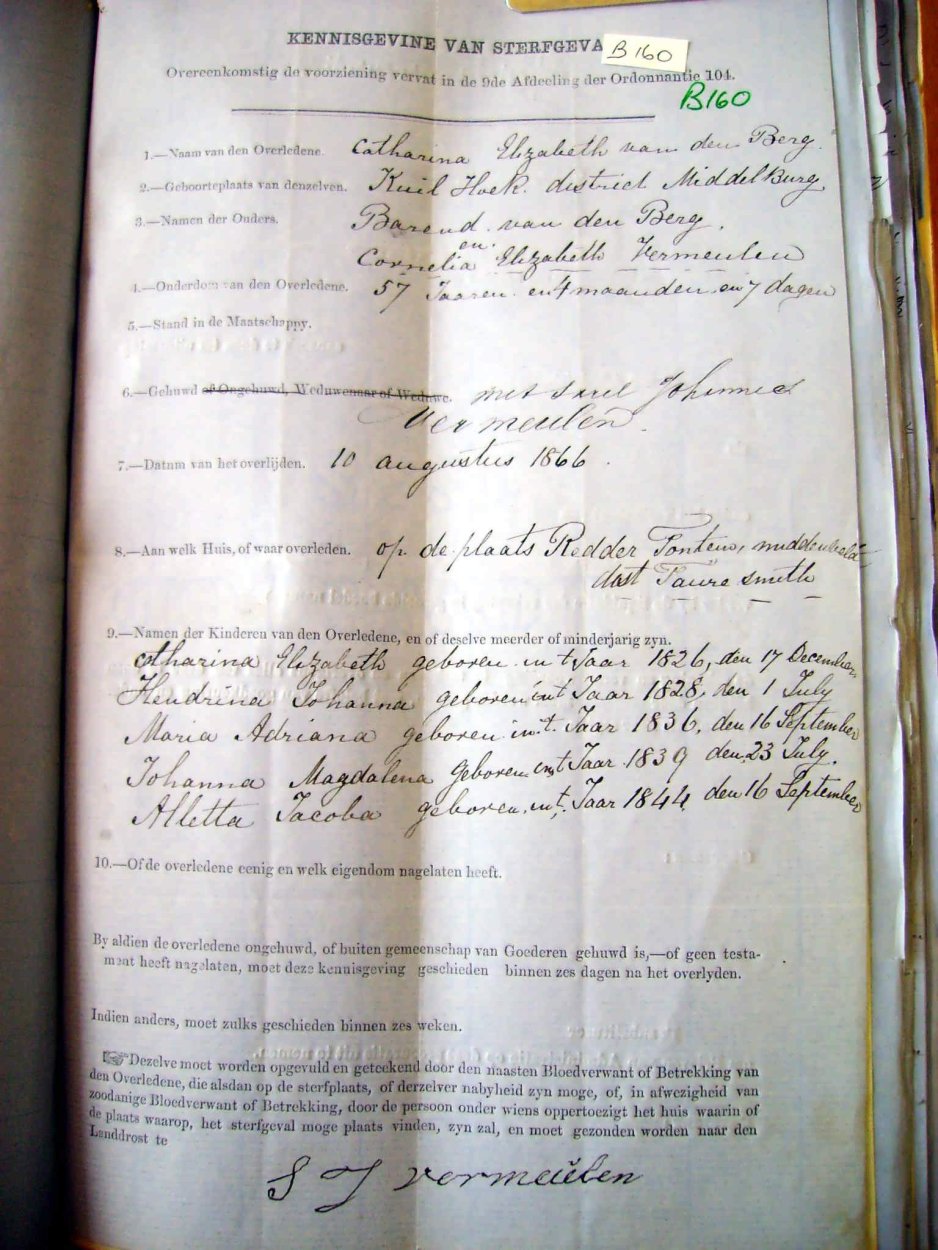 KENNISGEVINE VAN STERFGEVA
B160
Overeenkomstig de voorziening vervat in de 9de Afdeeling der Ordonnantie 104.
B160
1.—Naam van den Overledene. Catharina Elizabeth van den Berg.
2.—Geboorteplaats van denzelven. Kuil Hoek district Middelburg
3.—Namen der Ouders. Barend van den Berg.
en
Cornelia Elizabeth Vermeulen
4.—Onderdom van den Overledene. 57 Jaaren en 4 maanden en 7 dagen
5.—Stand in de Maatschappy.
6.—Gehuwd of Ongehuwd, Weduwenaar of Weduwe. met Sarel Johannes
Vermeulen.
7.—Datum van het overlijden. 10 augustus 1866.
8.—Aan welk Huis, of waar overleden. op de plaats Redder Fontein,
Faure smith
9.—Namen der Kinderen van den Overledene, en of deselve meerder of minderjarig zyn.
Catharina Elizabeth geboren in t Jaar 1826, den 17 December
Hendrina Johanna geboren int Jaar 1828, den 1 July
Maria Adriana geboren in t. Jaar 1836, den 16 September
Johanna Magdalena geboren int Jaar 1839 den 23 July.
Alletta Jacoba geboren in t. Jaar 1844 den 16 September
10.—Of de overledene eenig en welk eigendom nagelaten heeft.
By aldien de overledene ongehuwd, of buiten gemeenschap van Goederen gehuwd is,—of geen testa-
ment heeft nagelaten, moet deze kennisgeving geschieden binnen zes dagen na het overlyden.
Indien anders, moet zulks geschieden binnen zes weken.
☞Dezelve moet worden opgevuld en geteekend door den naasten Bloedverwant of Betrekking van
den Overledene, die alsdan op de sterfplaats, of derzelver nabyheid zyn moge, of, in afwezigheid van
zoodanige Bloedverwant of Betrekking, door de persoon onder wiens oppertoezigt het huis waarin of
de plaats waarop, het sterfgeval moge plaats vinden, zyn zal, en moet gezonden worden naar den
Landdrost te
S J Vermeulen